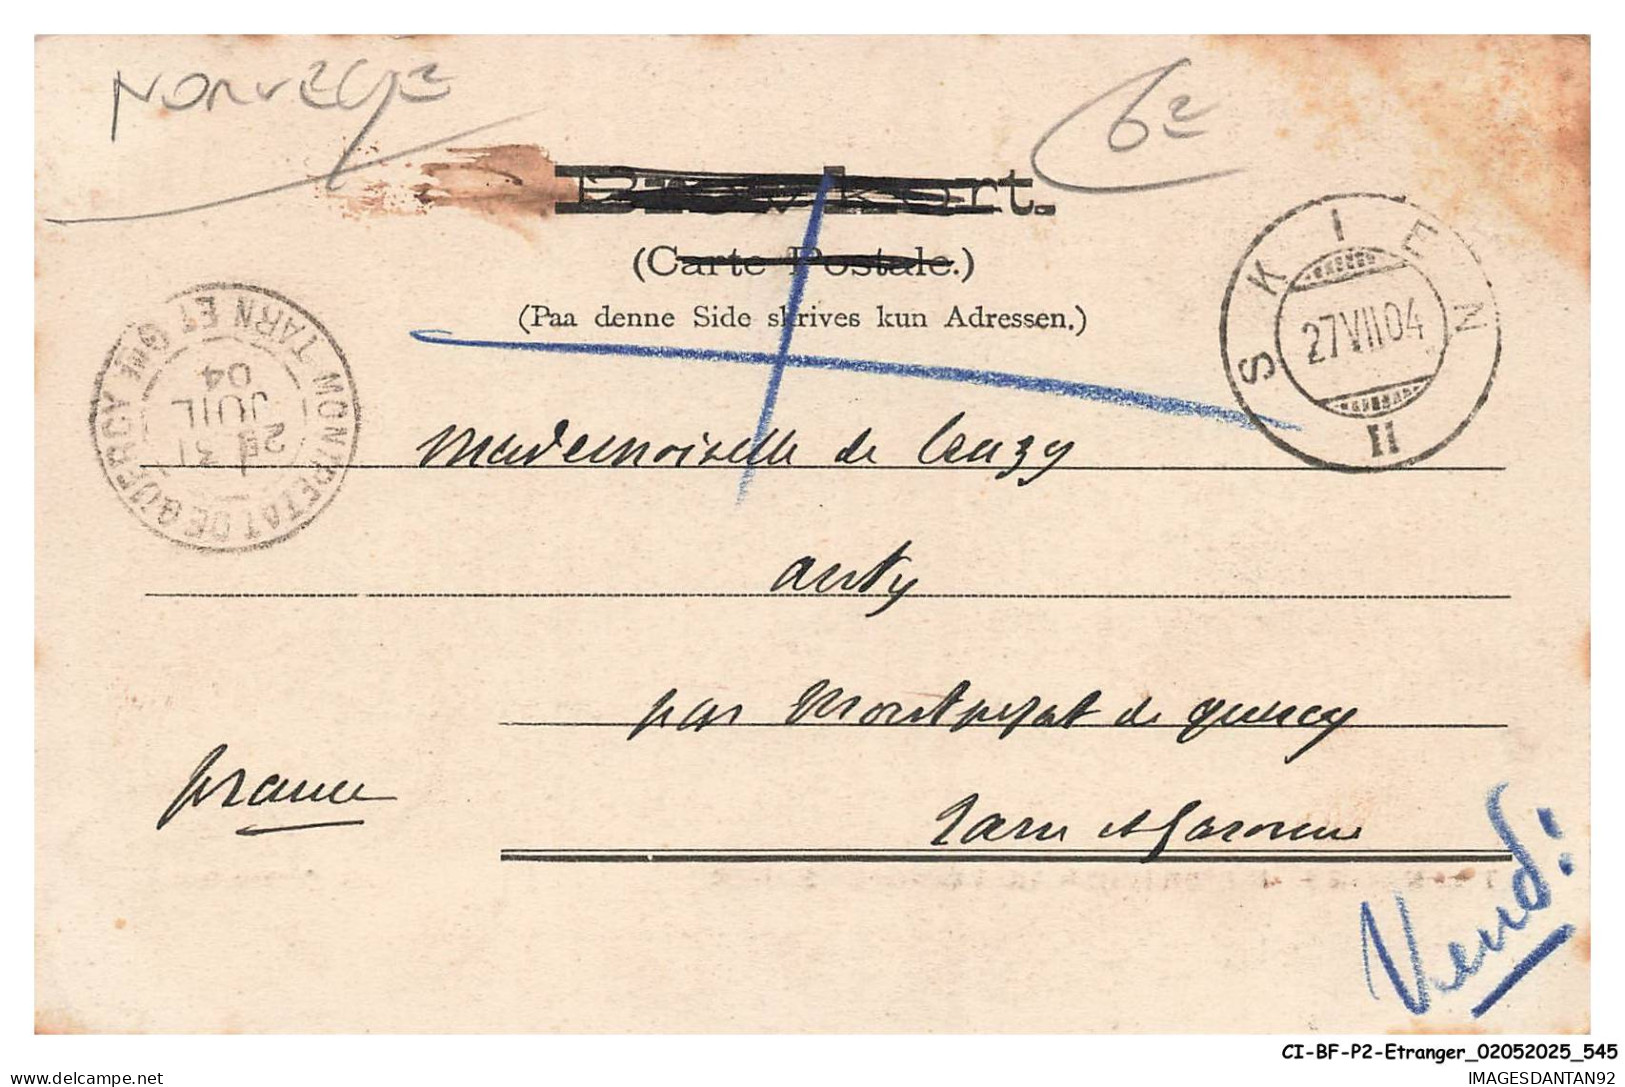 NORVEGE
6e
Brevkort.
(Carte Postale.)
(Paa denne Side skrives kun Adressen.)
SKIEN
27 VII 04
II
MONTPEZAT DE QUERCY TARN ET GNE
2E 31
JUIL
04
Mademoiselle de Cruzy
Auty
par Montpezat de Quercy
France
Tarn et Garonne
Vend:
CI-BF-P2-Etranger_02052025_545
delcampe.net
IMAGESDANTAN92